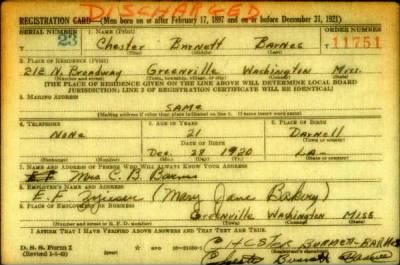 DISCHARGED
REGISTRATION CARD—(Men born on or after February 17, 1897 and on or before December 31, 1921)
SERIAL NUMBER 1. NAME (Print) ORDER NUMBER
23 Chester Barnett Barnes 11751
2. PLACE OF RESIDENCE (Print)
212 N. Broadway Greenville Washington Miss.
[THE PLACE OF RESIDENCE GIVEN ON THE LINE ABOVE WILL DETERMINE LOCAL BOARD
JURISDICTION; LINE 2 OF REGISTRATION CERTIFICATE WILL BE IDENTICAL]
3. MAILING ADDRESS
Same
4. TELEPHONE 5. AGE IN YEARS 6. PLACE OF BIRTH
None 21 Darnell
DATE OF BIRTH
Dec. 28 1920 LA.
7. NAME AND ADDRESS OF PERSON WHO WILL ALWAYS KNOW YOUR ADDRESS
Mrs C. B. Barnes
8. EMPLOYER'S NAME AND ADDRESS
E. F. (Mary Jane Bakery)
9. PLACE OF EMPLOYMENT OR BUSINESS
Greenville Washington Miss
I AFFIRM THAT I HAVE VERIFIED ABOVE ANSWERS AND THAT THEY ARE TRUE.
D. S. S. Form 1 CHESTER BARNES
(Revised 1-1-42) Chester Barnes